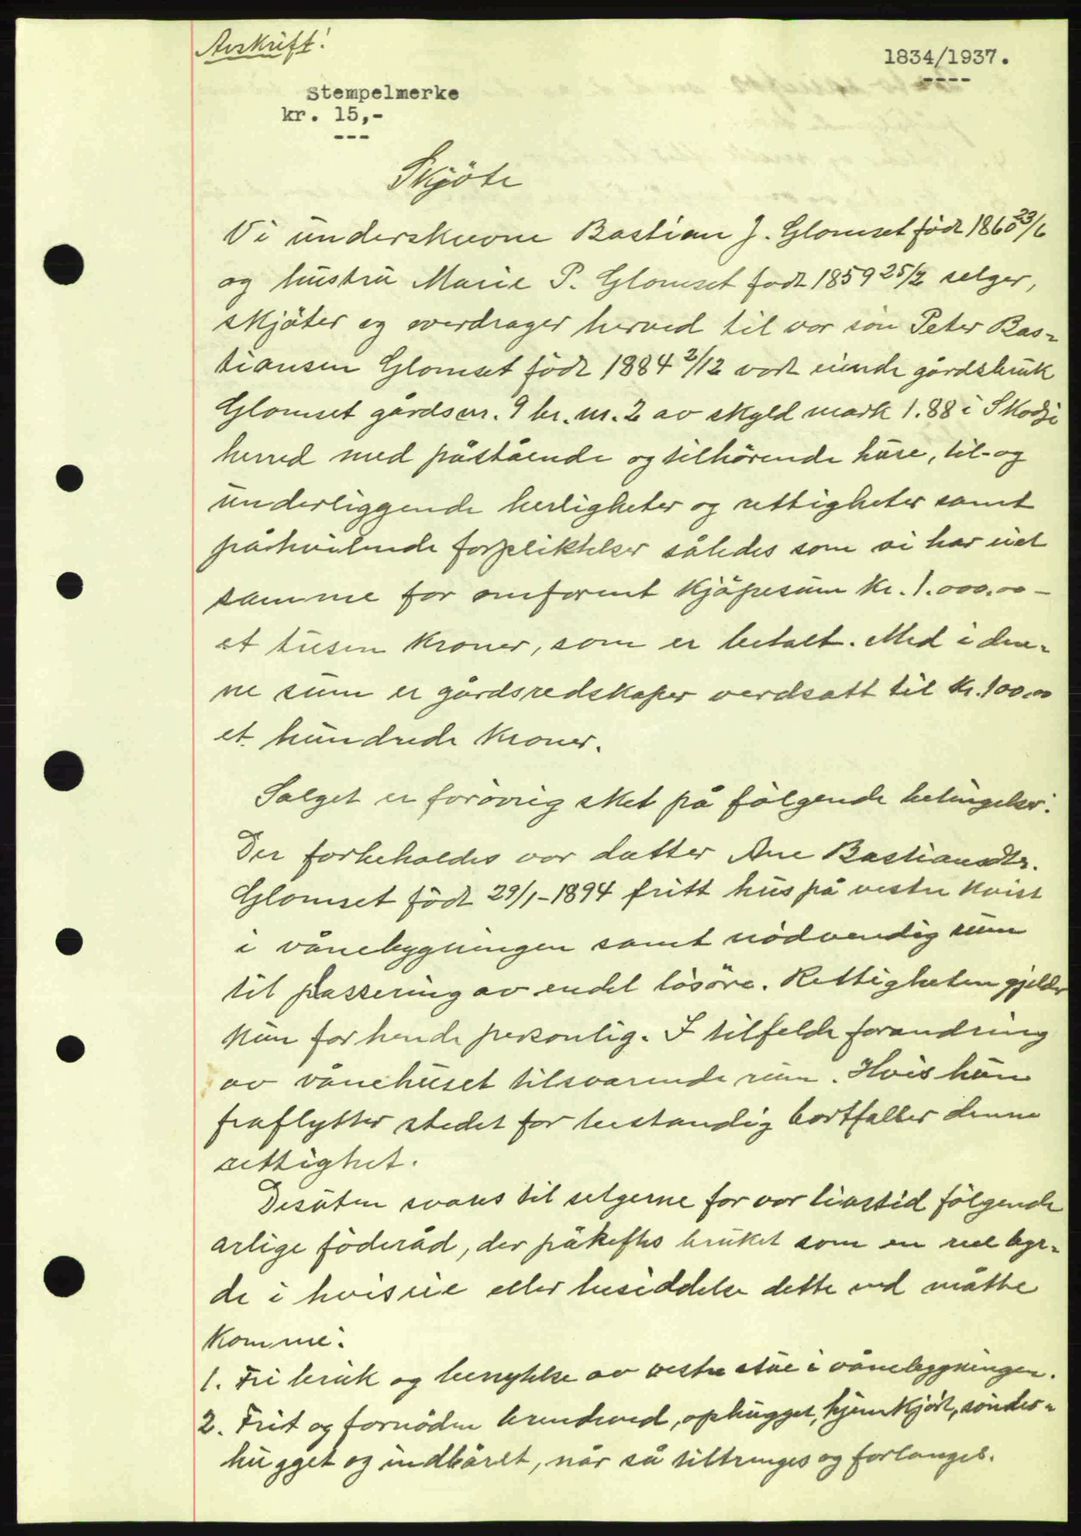 Avskrift!
1834/1937.
----
Stempelmerke
kr. 15,-
---
Skjöte
Vi underskrevne Bastian J. Glomset född 1860 23/6
og hustru Marie P. Glomset född 1859 25/2 selger,
skjöter og overdrager herved til vor sön Peter Bas-
tiansen Glomset född 1884 2/12 vort eiende gårdsbruk
Glomset gårdsnr. 9 br. nr. 2 av skyld mark 1.88 i Skodje
herred med påstående og tilhörende huse, til- og
underliggende herligheter og rettigheter samt
påhvilende forpliktelser således som vi har eiet
samme for omforent kjöpesum kr. 1.000.00 -
et tusen kroner, som er betalt. Med i den-
ne sum er gårdsredskaper verdsatt til kr. 100.00
et hundrede kroner.
Salget er forövrig sket på fölgende betingelser:
Der forbeholdes vor datter Ane Bastiansdtr.
Glomset född 29/1-1894 fritt hus på vestre kvist
i vånebygningen samt nödvendig rum
til plassering av endel lösöre. Rettigheten gjelder
kun for hende personlig. I tilfelde forandring
av vånehuset tilsvarende rum. Hvis hun
fraflytter stedet for bestandig bortfaller denne
rettighet.
Desuten svares til selgerne for vor livstid fölgende
årlige föderåd, der påheftes bruket som en reel byr-
de i hvis eie eller besiddelse dette ved måtte
komme:
1. Fri bruk og benyttelse av vestre stue i vånebygningen.
2. Frit og fornöden brendeved, ophugget, hjemkjört, sönder-
hugget og indbåret, når så tiltrenges og forlanges.